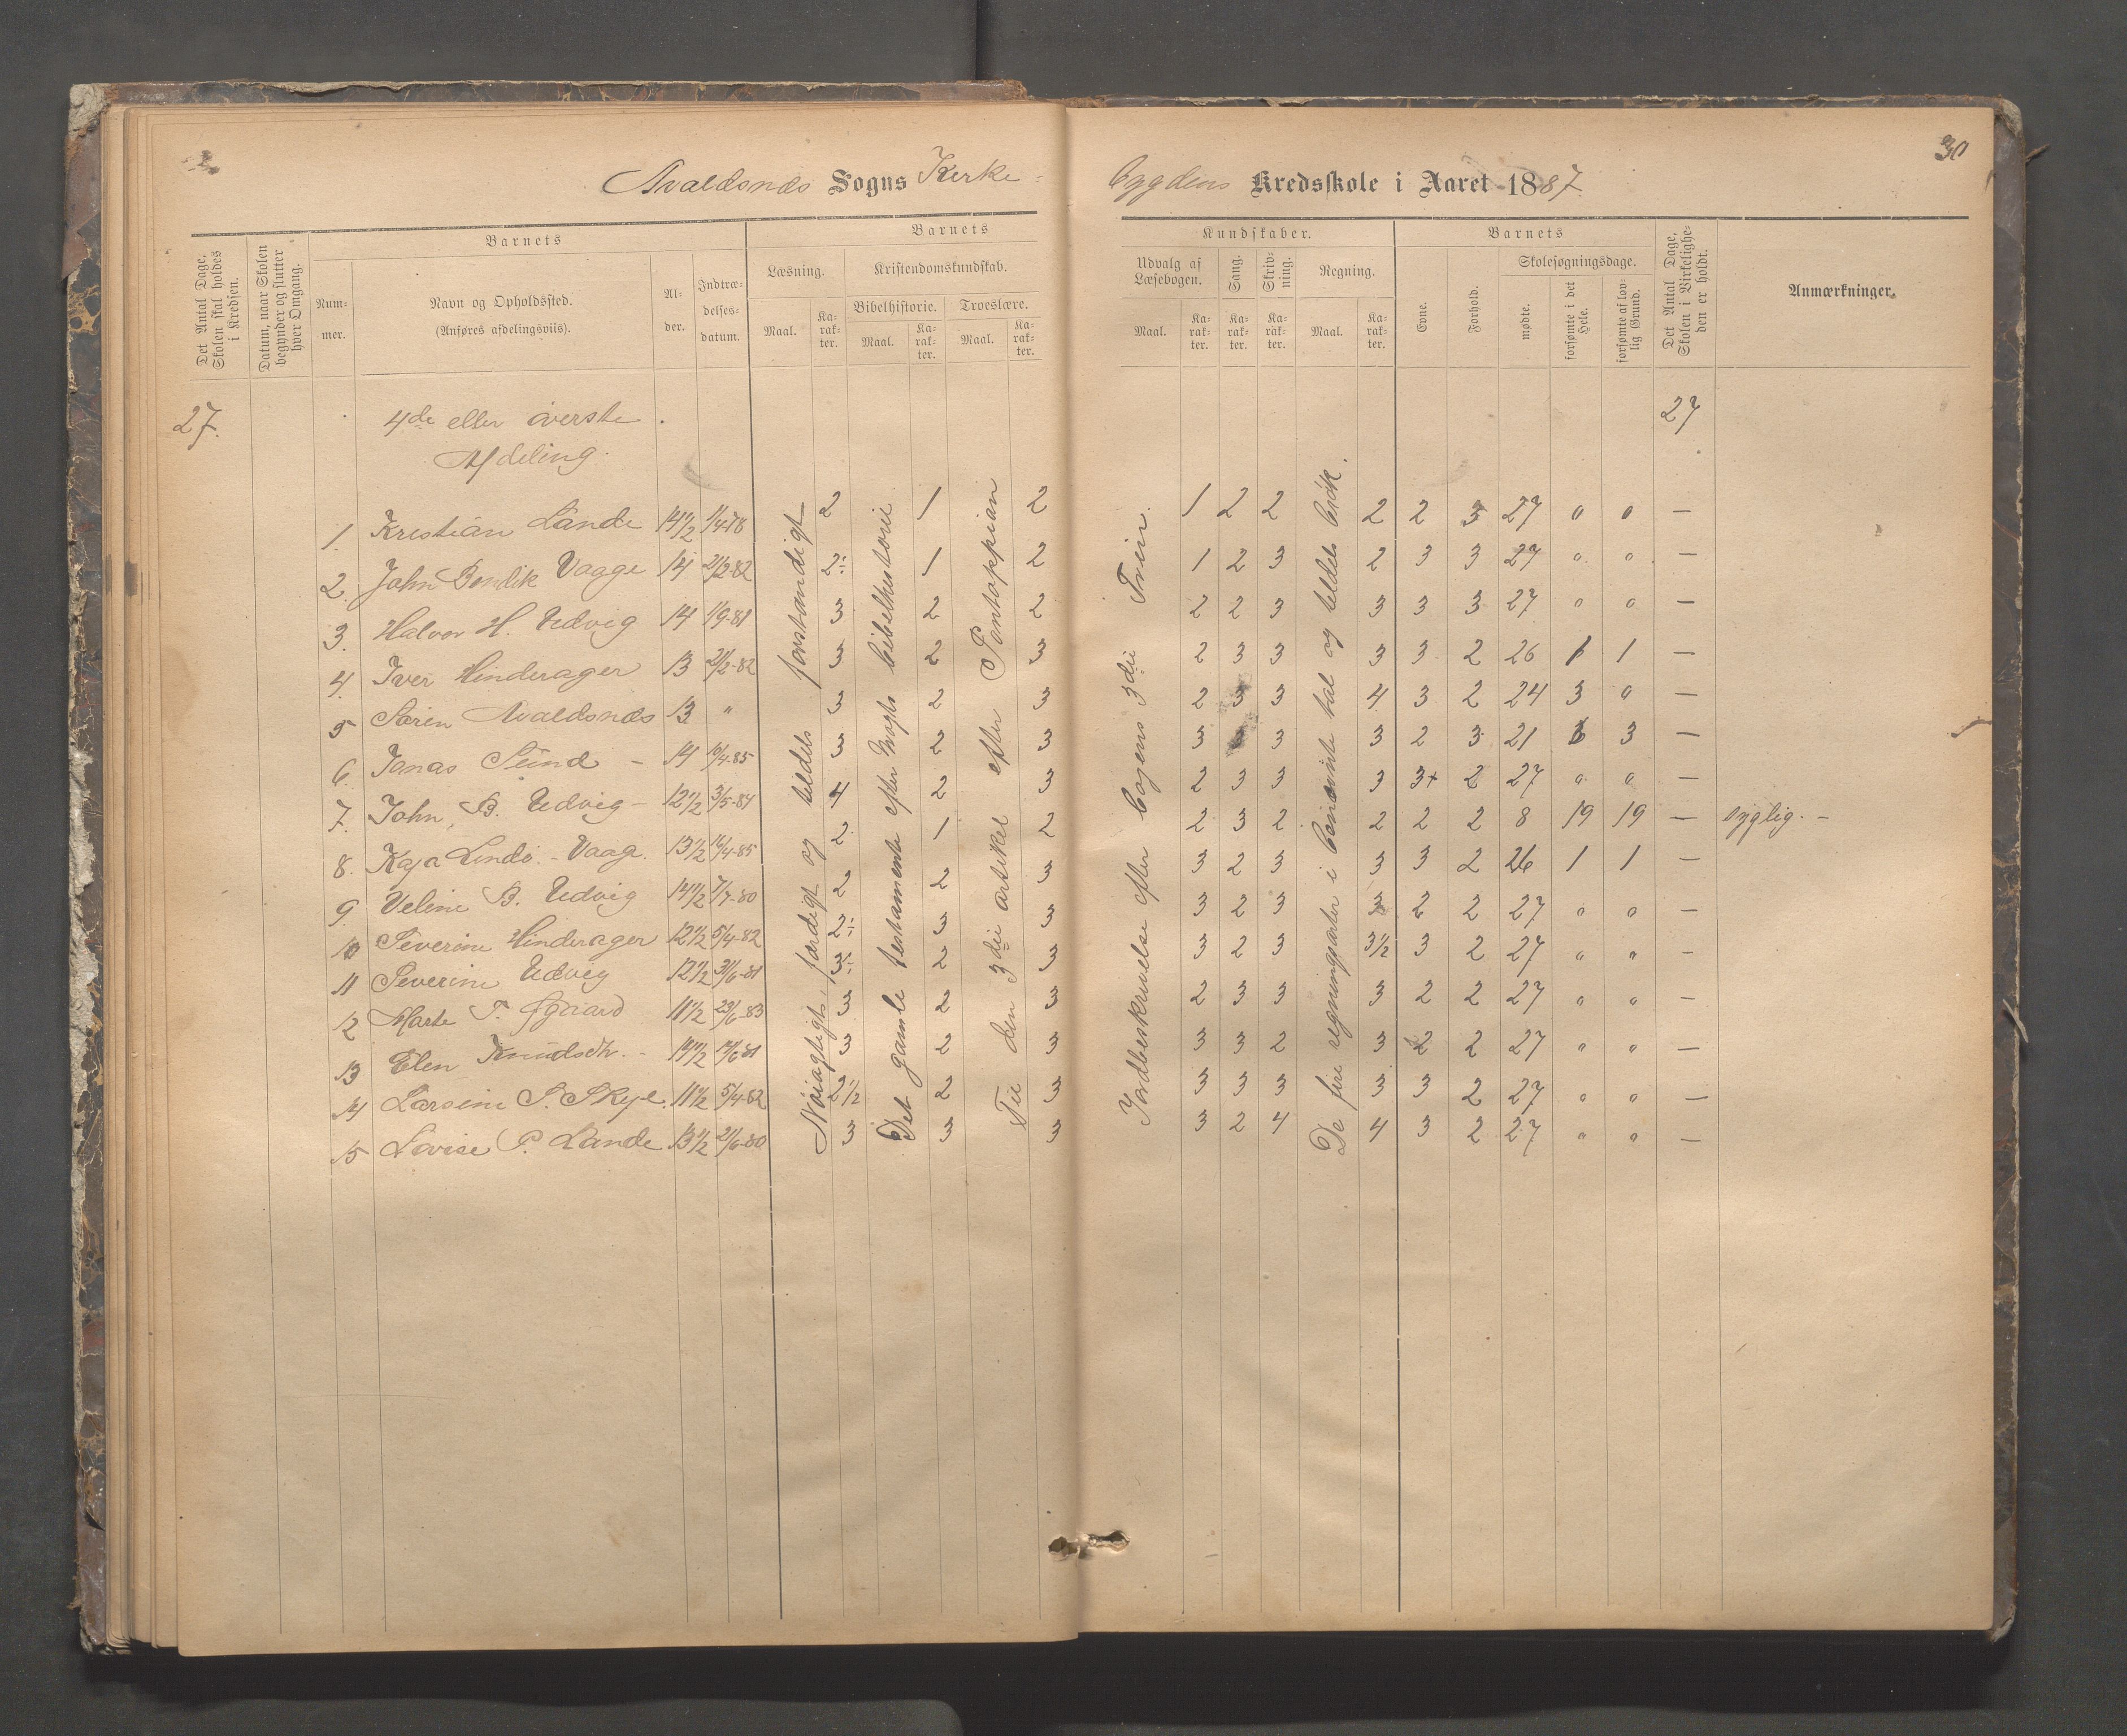 30
Avaldsnæs Sogns Kirke-
bygdens Kredsskole i Aaret 1887.
Det Antal Dage, Skolen skal holdes i Kredsen.
Datum, naar Skolen begynder og slutter hver Omgang.
Barnets
Nummer.
Navn og Opholdssted.
(Anføres afdelingsviis).
Alder.
Indtrædelsesdatum.
Barnets
Læsning.
Maal.
Karakter.
Kristendomskundskab.
Bibelhistorie.
Maal.
Karakter.
Troeslære.
Maal.
Karakter.
Kundskaber.
Udvalg af Læsebogen.
Maal.
Karakter.
Sang.
Karakter.
Skrivning.
Karakter.
Regning.
Maal.
Karakter.
Barnets
Evne.
Forhold.
Skolesøgningsdage.
mødte.
forsømte i det Hele.
forsømte af lovlig Grund.
Det Antal Dage, Skolen i Virkeligheden er holdt.
Anmærkninger.
27.
4de eller øverste
Afdeling.
27
Nøiagtigt, færdigt og tildels forstandigt
Det gamle testamente efter Vogts bibelhistorie
Til den 3die artikel efter Pontoppian
Jordbeskrivelse efter bogens 3die Trin.
De fire regningsarter i benævnte tal og tildels brøk.
1. Kristian Lande 14 1/2 1/4-78 2 1 2 1 2 2 2 2 3 27 " " —
2. John Bendik Vaage 14 2/2-82 2÷ 1 2 1 2 3 2 3 3 27 " " —
3. Halvor H. Udvig 14 1/9-81 3 2 2 2 2 3 3 3 3 27 " " —
4. Iver Hinderager 13 2/2-82 3 2 3 2 3 3 3 3 2 26 1 1 —
5 Søren Avaldsnæs 13 " 3 2 3 2 3 3 4 3 2 24 3 " —
6. Jonas Sund - 14 /4-85 3 2 3 3 3 3 3 2 3 21 6 3 —
7. John B. Udvig - 12 1/2 3/5-81 4 2 3 2 3 3 3 3+ 2 27 " " —
8. Kaja Lindö. - Vaag. 13 1/2 /4-85 2 1 2 2 3 2 2 2 2 8 19 19 — syglig. -
9. Veline B. Udvig 14 1/2 7/7-80 2 2 3 3 2 3 3 3 2 26 1 1 —
10 Severine Hinderager 12 1/2 5/4-82 2÷ 3 3 3 2 3 3 2 2 27 " " —
11 Severine Udvig 12 1/2 /6-81 3÷ 2 3 3 2 3 3 1/2 3 2 27 " " —
12 Marte T. 11 1/2 23/6-83 3 2 3 2 3 3 3 2 2 27 " " —
13 Elen Knudsdtr. - 14 1/2 /6-81 3 2 3 3 3 2 3 2 2 27 " " —
14 Larsine S. Skeje. 11 1/2 5/4-82 2 1/2 2 3 3 3 3 3 3 2 27 " " —
15 Lovise P. Lande 13 1/2 2/6-80 3 3 3 3 2 4 4 3 2 27 " " —